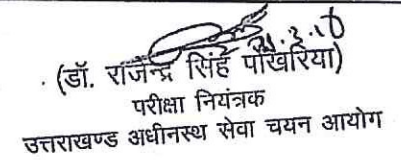 (डॉ. राजेन्द्र सिंह पोखरिया)
परीक्षा नियंत्रक
उत्तराखण्ड अधीनस्थ सेवा चयन आयोग